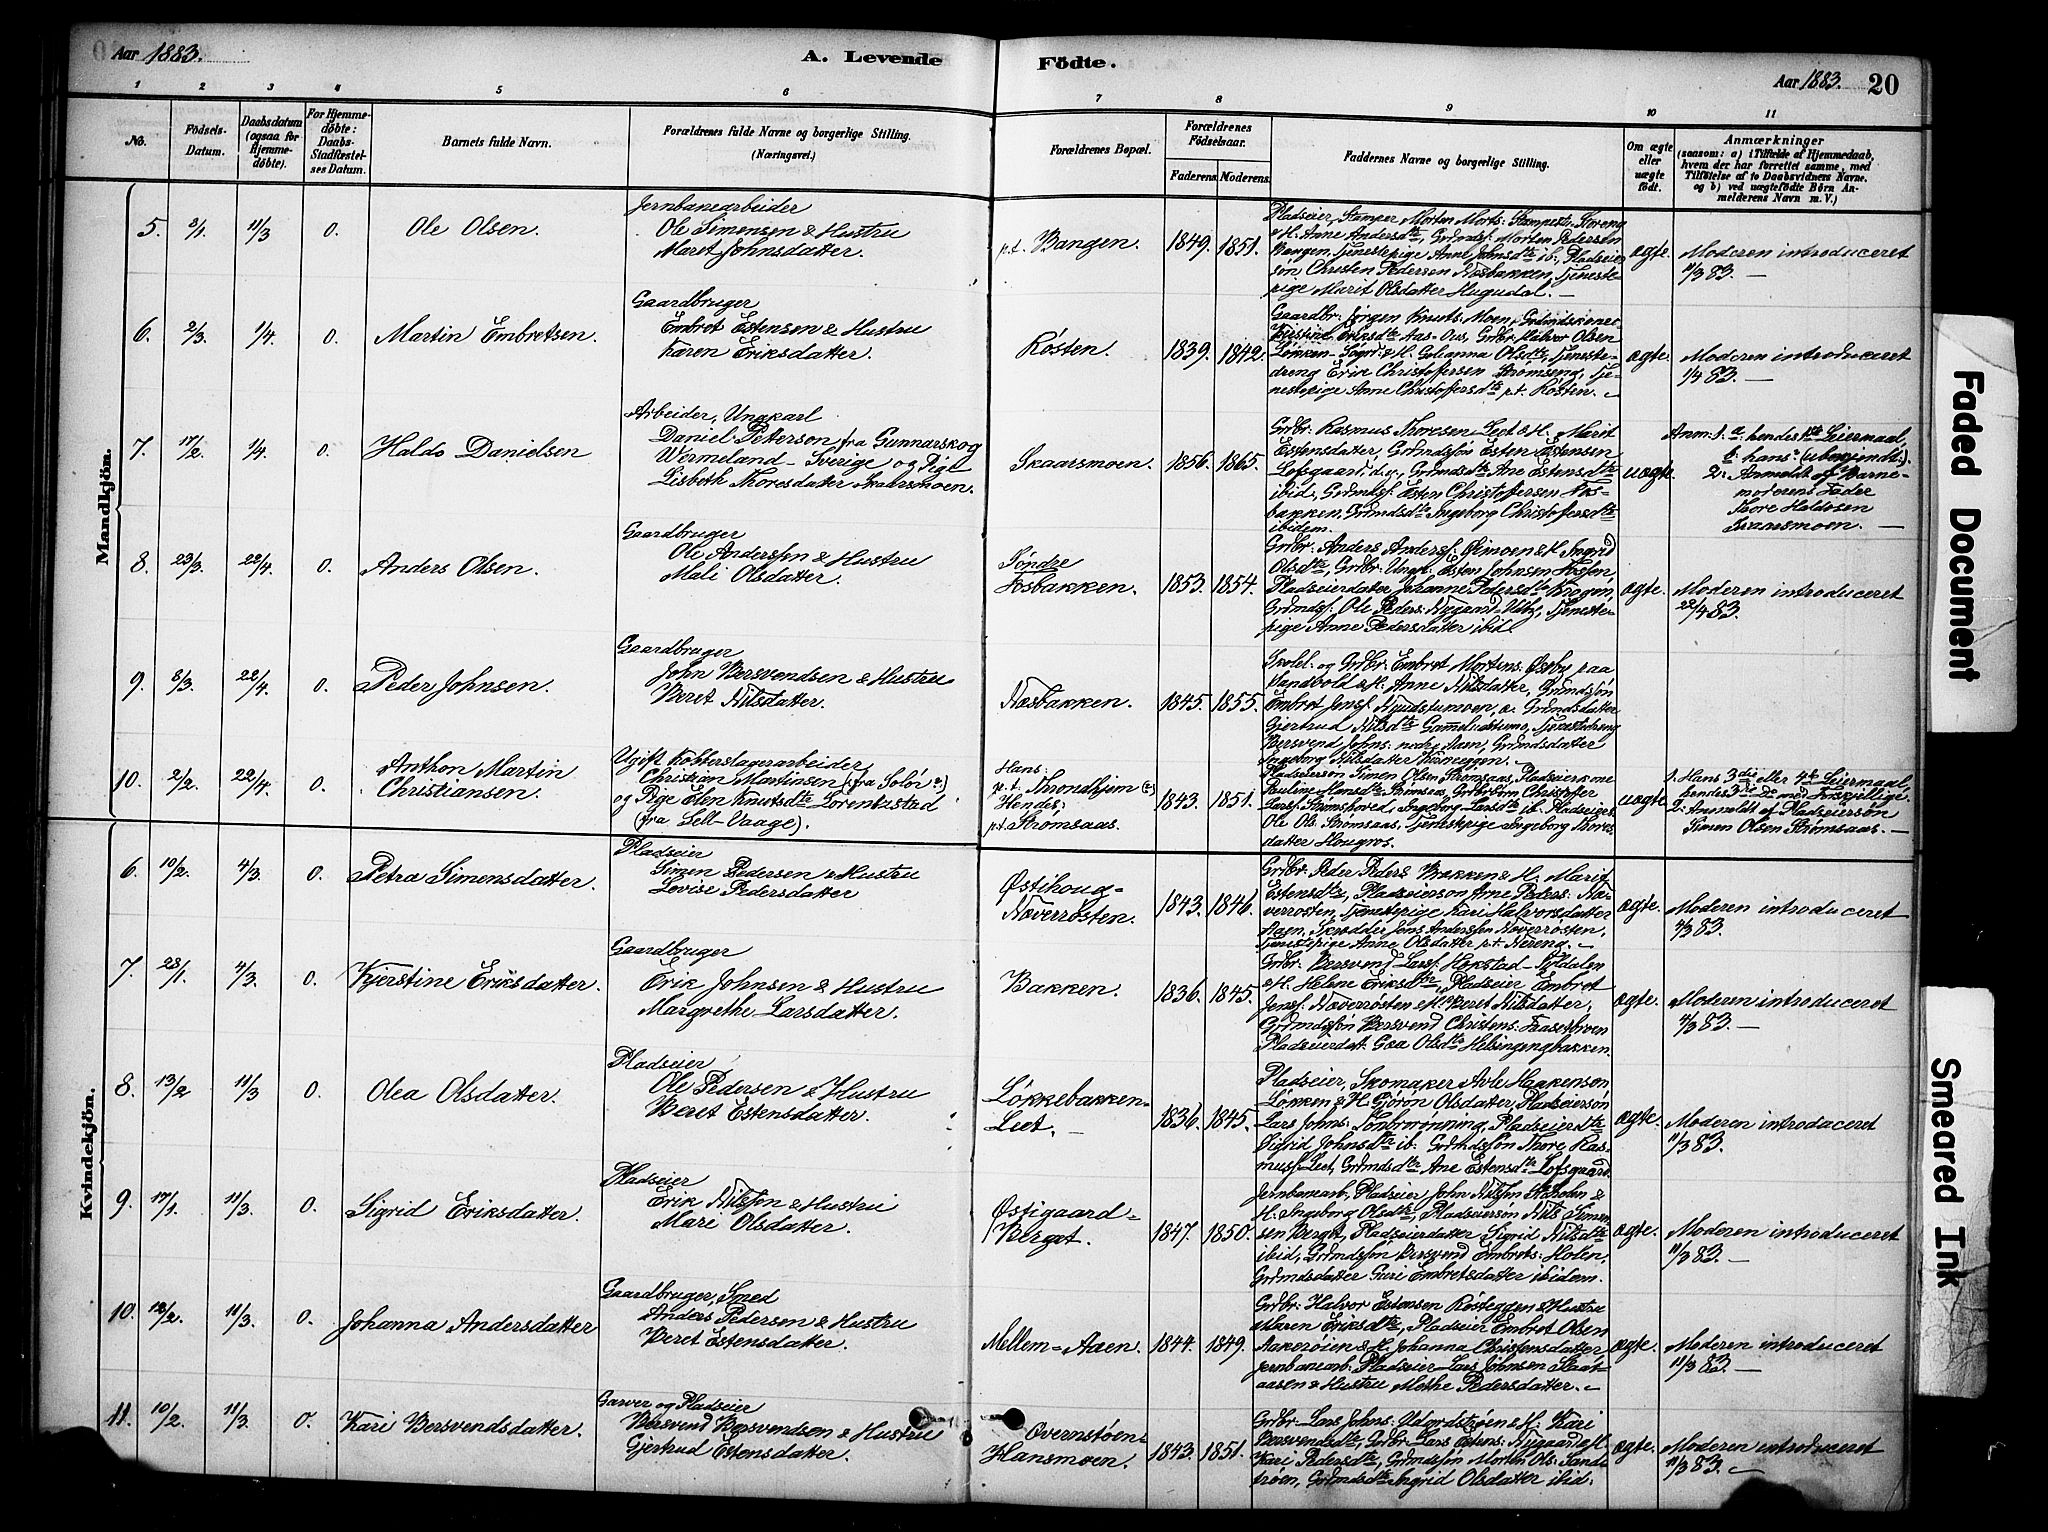 Aar 1883.
A. Levende
Födte.
Aar 1883.
20
1 2 3 4 5 6 7 8 9 10 11
No.
Födsels-Datum.
Daabsdatum (ogsaa for Hjemmedöbte).
For Hjemmedöbte: Daabs-Stadfæstelses Datum.
Barnets fulde Navn.
Forældrenes fulde Navne og borgerlige Stilling.
(Næringsvei.)
Forældrenes Bopæl.
Forældrenes Födselsaar.
Faderens. Moderens.
Faddernes Navne og borgerlige Stilling.
Om ægte eller uægte født.
Anmærkninger
(saasom: a) i Tilfælde af Hjemmedaab,
hvem der har forrettet samme, med
Tilföielse af to Daabsvidners Navne.
og b) ved uægtefödte Börn An-
melderens Navn m. V.)
Mandkjön.
5. 2/1 11/3 0. Ole Olsen.
Jernbanearbeider
Ole Simensen & Hustru
Marit Johnsdatter.
p.t. Bangen. 1849. 1851.
Pladseier, Stamper Morten Morts:
& H. Anne Andersdtr, Grdmdsf. Morten Pedersøn
Bangen, Tjenestepige Anne Johnsdtr ib., Pladseier
søn Christen Pedersen Næsbakken, Tjeneste-
pige Marit Olsdatter Hugudal. —
ægte. Moderen introduceret
11/3 83. —
6. 2/3 1/4 0. Martin Embretsen.
Gaardbruger
Embret Estensen & Hustru
Karen Eriksdatter.
Rösten. 1839. 1842.
Gaardbr: Jørgen Knuts: Moen,
Kjerstine Eriksdtr Aas-Ous, Grdbr. Halvor Olsen
Løkken & H. Golianna Olsdtr, Tjeneste-
dreng Erik Christofersen Strømseng, Tje-
nestepige Anne Christofersdtr p.t. Rösten.
ægte. Moderen introduceret
1/4 83. —
7. 17/2 1/4 0. Haldo Danielsen
Arbeider, Ungkarl
Daniel Petterson fra Gunnarskog
Wermeland - Sverige og Pige
Lisbeth Thoresdatter Skaarsmoen.
Skaarsmoen. 1856. 1865.
Grdbr: Rasmus Thoresen Leet & H. Marit
Estensdatter, Grdmdsøn Esten Estensen
Lofsgaard, Grdmdsdtr Ane Estensdtr
ibid, Grdmdsf. Esten Christoffersen Fos-
bakken, Grdmdsdtr Ingeborg Christofersdtr
ibidem.
uægte. Anm: 1. a: hendes 1ste Leiermaal,
b: hans: (ubekjendt).
2: Anmeldt af Barne-
moderens Fader
Thore Haldosen
Skaarsmoen. —
8. 23/3 22/4 0. Anders Olsen.
Gaardbruger
Ole Anderssen & Hustru
Mali Olsdatter.
Søndre
Fosbakken. 1853. 1854.
Grdbr: Anders Andersf. Øimoen & H. Ingrid
Olsdtr, Grdbr: Ungk: Esten Johnsen Fossen,
Pladseierdatter Johanne Pedersdtr
Grdmdsf. Ole Peders: Nygaard, Tjeneste-
pige Anne Pedersdatter ibid.
ægte. Moderen introduceret
22/4 83.
9. 8/3 22/4 0. Peder Johnsen.
Gaardbruger
John Bersvendsen & Hustru
Beret Nilsdatter.
Næsbakken. 1845. 1855.
Skolel. og Grdbr: Embret Mortens: Østby paa
& H. Anne Nilsdatter, Grdmdsøn
Embret Jensf. Grdmdsdatter
Gjertrud Nilsdtr, Tjenestedreng
Bersvend Johns: nedre Aaen, Grdmdsdatter
Ingeborg Nilsdatter
10. 2/2 22/4 0. Anthon Martin
Christiansen.
Ugift Kobberslagerarbeider
Christian Martinsen (fra Solör?)
og Pige Elen Knutsdtr Lorentzstad
(fra Sell-Vaage).
Hans:
p.t. Throndhjem (?)
Hendes:
p.t. Strømsaas. 1843. 1851.
Pladseiersøn Simen Olsen Strømsaas, Pladseierkone
Pauline Hansdtr Strømsaas, Grdbrsøn Christoffer
Larsf. Ingeborg Larsdtr ib. Pladseier
Ole Ols. Strømsaas, Tjenestepige Ingeborg Thores-
datter Hougros.
uægte 1. Hans 3die eller 4de Leiermaal,
hendes 3die do med Forskjellige.
2: Anmeldt af Pladseiersøn
Simen Olsen Strømsaas. —
Kvindekjön.
6. 10/2 4/3 0. Petra Simensdatter.
Pladseier
Simen Pedersen & Hustru
Lovise Pedersdatter.
Østihoug-
Næverrösten. 1843. 1846.
Grdbr: Peder Peders. Bakken & H. Marit
Estensdtr, Pladseiersøn Arne Peders: Næ-
verrosten, Tjenestepige Kari Halvorsdatter
Aaen, Skrædder Jens Anderssøn Næverrosten,
Tjenestepige Anne Olsdatter p.t. Nereng. —
ægte. Moderen introduceret
4/3 83.
7. 28/1 4/3 0. Kjerstine Eriksdatter.
Gaardbruger
Erik Johnsen & Hustru
Margrethe Larsdatter.
Bakken. 1836. 1845.
Grdbr: Bersvend Larsf. Hokstad - Tyldalen
& H. Helene Eriksdtr, Pladseier Embret
Jensf. Næverrösten & H. Beret Nilsdatter,
Grdmdssøn Bersvend Christens:
Pladseierdat. Goa Olsdtr Helsingengbakken.
ægte. Moderen introduceret
4/3 83. —
8. 13/2 11/3 0. Olea Olsdatter.
Pladseier
Ole Pedersen & Hustru
Beret Estensdatter.
Løkkebakken-
Leet. — 1836. 1845.
Pladseier, Skomaker Avle Haakenson
Løkken & H. Gjörön Olsdatter, Pladseiersøn
Lars Johns: Tønbrönning, Pladseierdtr
Sigrid Johnsdtr ib: Grdmdssøn Thore Ras-
musf. Leet, Grdmdsdtr Ane Estensdtr Lofsgaard.
ægte. Moderen introduceret
11/3 83. —
9. 17/1 11/3 0. Sigrid Eriksdatter.
Pladseier
Erik Nilssen & Hustru
Mari Olsdatter.
Østigaard-
Berget. 1847. 1850.
Jernbanearb., Pladseier John Nilssen &
H. Ingeborg Olsdtr, Pladseiersøn Nils Simen-
sen Berget, Pladseierdatter Sigrid Nilsdtr
ibid, Grdmdssøn Bersvend Embrets: Holen,
Grdmdsdatter Guri Embretsdatter ibidem.
ægte. Moderen introduceret
11/3 83. —
10. 12/2 11/3 0. Johanna Andersdatter
Gaardbruger, Smed
Anders Pederson & Hustru
Beret Estensdatter.
Mellem-Aaen. 1844. 1849.
Grdbr: Halvor Estensen Rösteggen & Hustru
Maren Eriksdtr, Pladseier Embret Olsen
Aakerøien & H. Johanna Christensdatter,
Jernbanearb. Pladseier Lars Johnsen Slaat-
aasen & Hustru Mothe Pedersdatter. —
ægte. Moderen introduceret
11/3 83. —
11. 10/2 11/3 0. Kari Bersvendsdatter.
Garver og Pladseier
Bersvend Bersvendson & Hustru
Gjertrud Estensdatter.
Overnstøen-
Hansmoen. 1843. 1851.
Grdbr: Lars Johns: Udgrdstrøen & H. Kari
Bersvendsdtr, Grdbr. Lars Estens: Nygaard & H.
Kari Pedersdtr, Grdmdssøn Morten Ols: Sand-
trøen, Grdmdsdtr Ingrid Olsdatter ibid.
ægte. Moderen introduceret
11/3 83. —
Faded Document
Smeared Ink